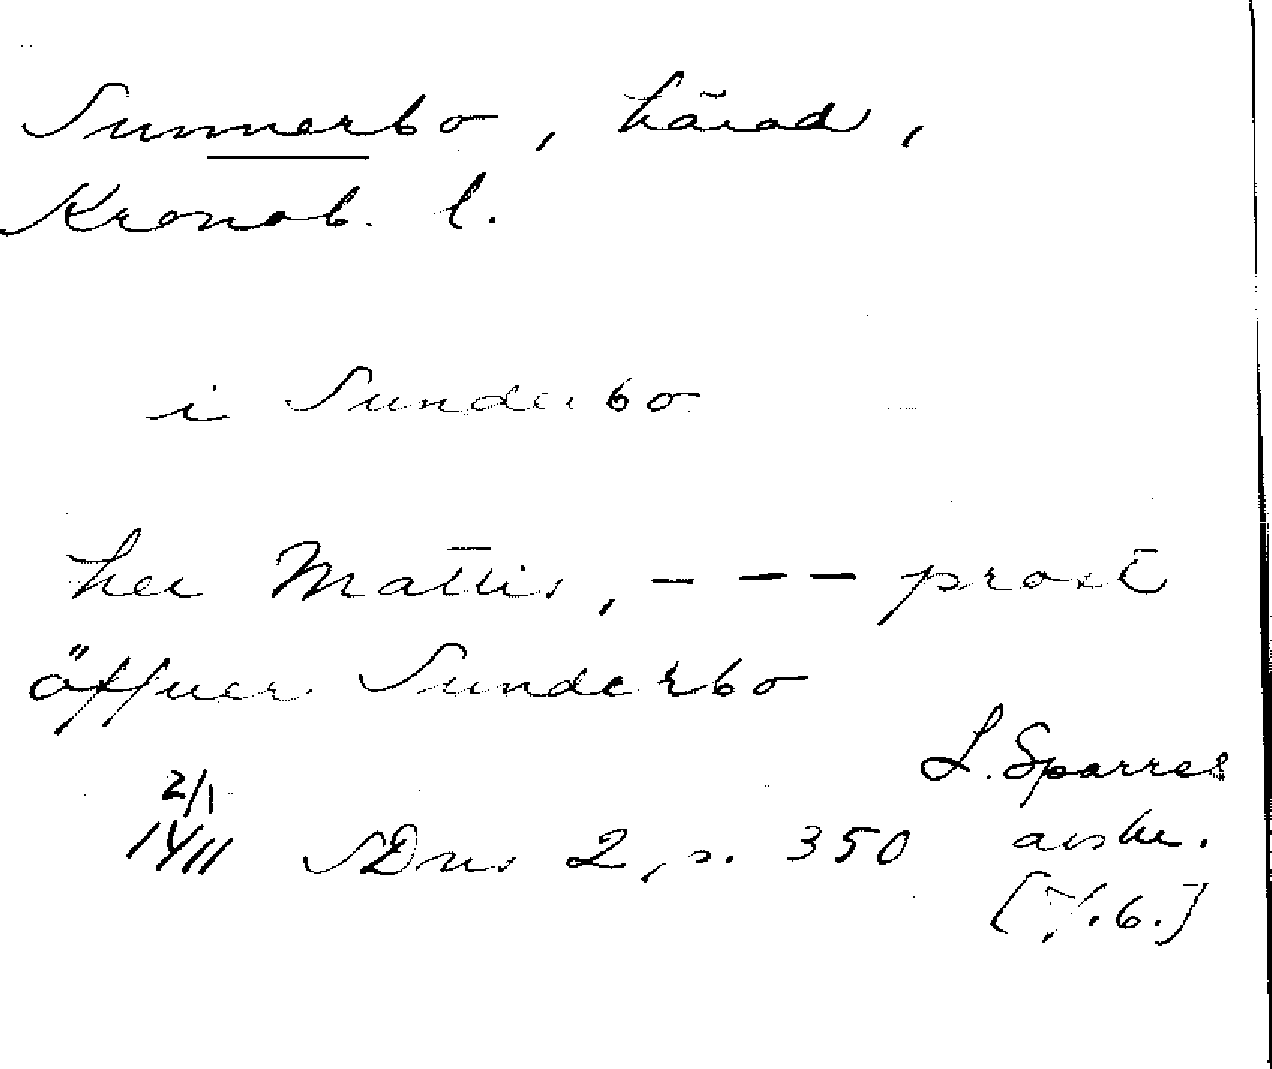 Sunnerbo, härad,
Kronob. l.
i Sunderbo
her Mattis, - - - prost
öffuer Sunderbo
2/1
1411 SDns 2, s. 350
L. Sparres
avskr.